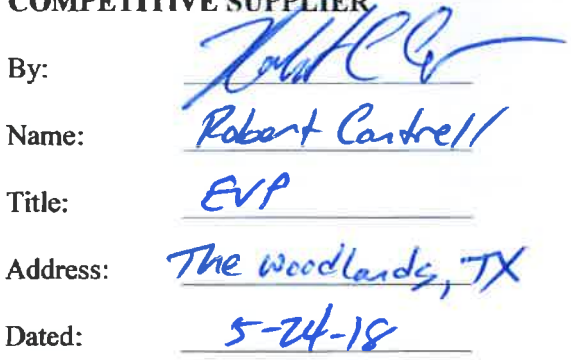 COMPETITIVE SUPPLIER
By:
Name: Robert Cantrell
Title: EVP
Address: The Woodlands, TX
Dated: 5-24-18